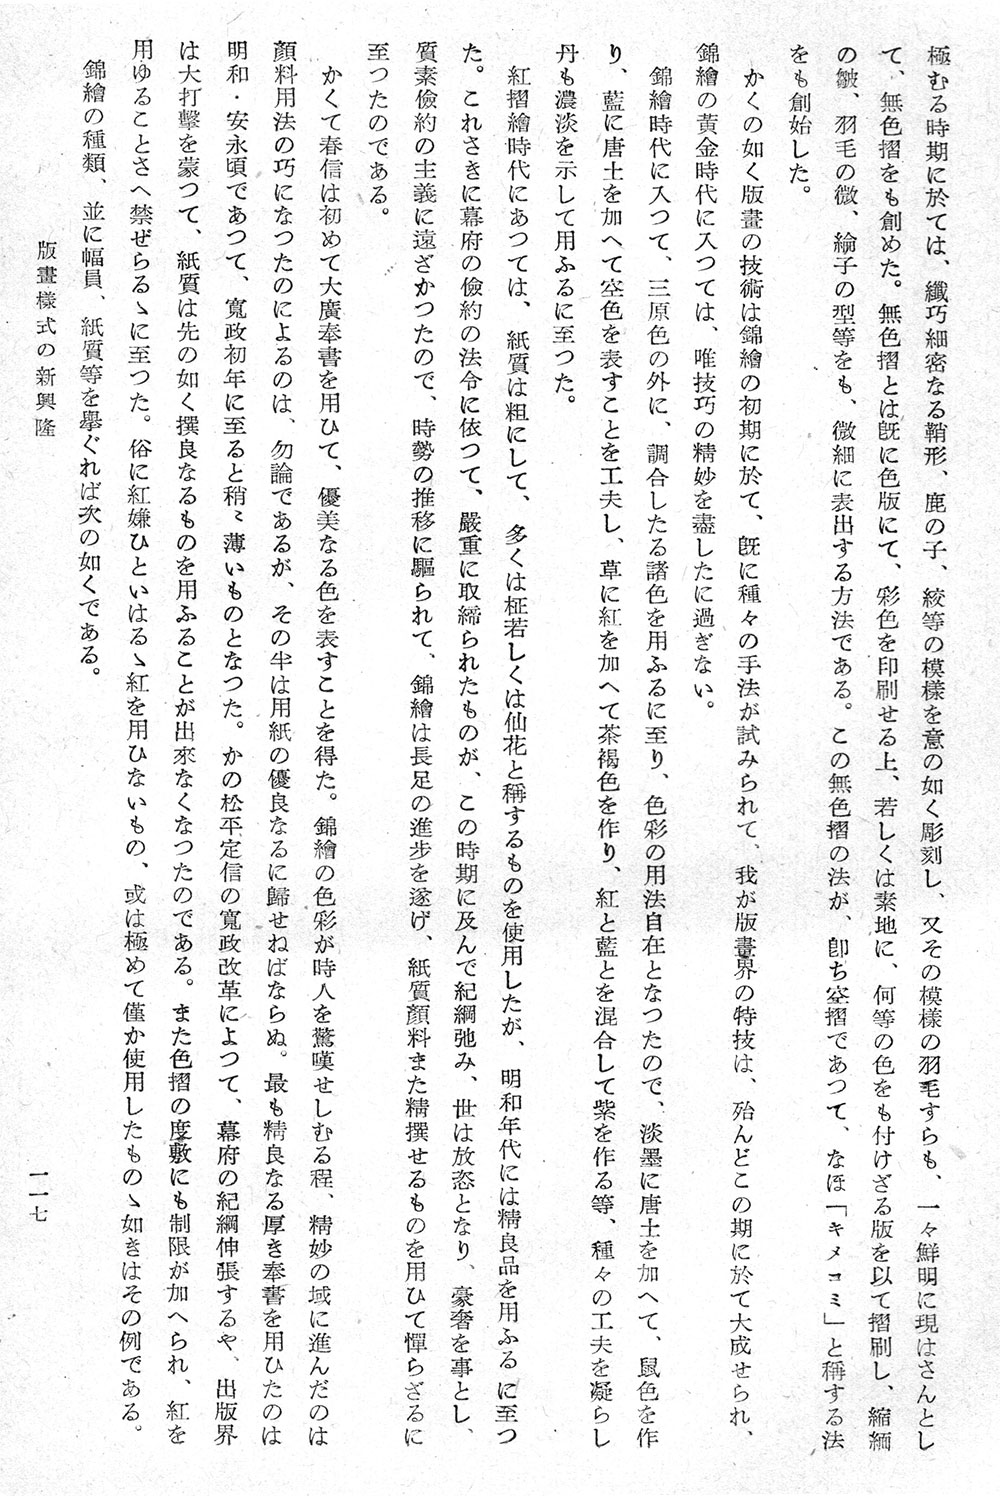 極むる時期に於ては、纖巧細密なる鞘形、鹿の子、絞等の模樣を意の如く彫刻し、又その模樣の羽毛すらも、一々鮮明に現はさんとし
て、無色摺をも創めた。無色摺とは旣に色版にて、彩色を印刷せる上、若しくは素地に、何等の色をも付けざる版を以て摺刷し、縮緬
の皺、羽毛の微、綸子の型等をも、微細に表出する方法である。この無色摺の法が、卽ち空摺であつて、なほ「キメコミ」と稱する法
をも創始した。
かくの如く版畫の技術は錦繪の初期に於て、旣に種々の手法が試みられて、我が版畫界の特技は、殆んどこの期に於て大成せられ、
錦繪の黄金時代に入つては、唯技巧の精妙を盡したに過ぎない。
錦繪時代に入つて、三原色の外に、調合したる諸色を用ふるに至り、色彩の用法自在となつたので、淡墨に唐土を加へて、鼠色を作
り、藍に唐土を加へて空色を表すことを工夫し、草に紅を加へて茶褐色を作り、紅と藍とを混合して紫を作る等、種々の工夫を凝らし
丹も濃淡を示して用ふるに至つた。
紅摺繪時代にあつては、紙質は粗にして、多くは柾若しくは仙花と稱するものを使用したが、明和年代には精良品を用ふるに至つ
た。これさきに幕府の儉約の法令に依つて、嚴重に取締られたものが、この時期に及んで紀綱弛み、世は放恣となり、豪奢を事とし、
質素儉約の主義に遠ざかつたので、時勢の推移に驅られて、錦繪は長足の進步を遂げ、紙質顏料また精撰せるものを用ひて憚らざるに
至つたのである。
かくて春信は初めて大廣奉書を用ひて、優美なる色を表すことを得た。錦繪の色彩が時人を驚嘆せしむる程、精妙の域に進んだのは
顏料用法の巧になつたのによるのは、勿論であるが、その半は用紙の優良なるに歸せねばならぬ。最も精良なる厚き奉書を用ひたのは
明和・安永頃であつて、寬政初年に至ると稍〻薄いものとなつた。かの松平定信の寬政改革によつて、幕府の紀綱伸張するや、出版界
は大打擊を蒙つて、紙質は先の如く撰良なるものを用ふることが出來なくなつたのである。また色摺の度數にも制限が加へられ、紅を
用ゆることさへ禁ぜらるゝに至つた。俗に紅嫌ひといはるゝ紅を用ひないもの、或は極めて僅か使用したものゝ如きはその例である。
錦繪の種類、並に幅員、紙質等を擧ぐれば次の如くである。
版畫樣式の新興隆
一一七